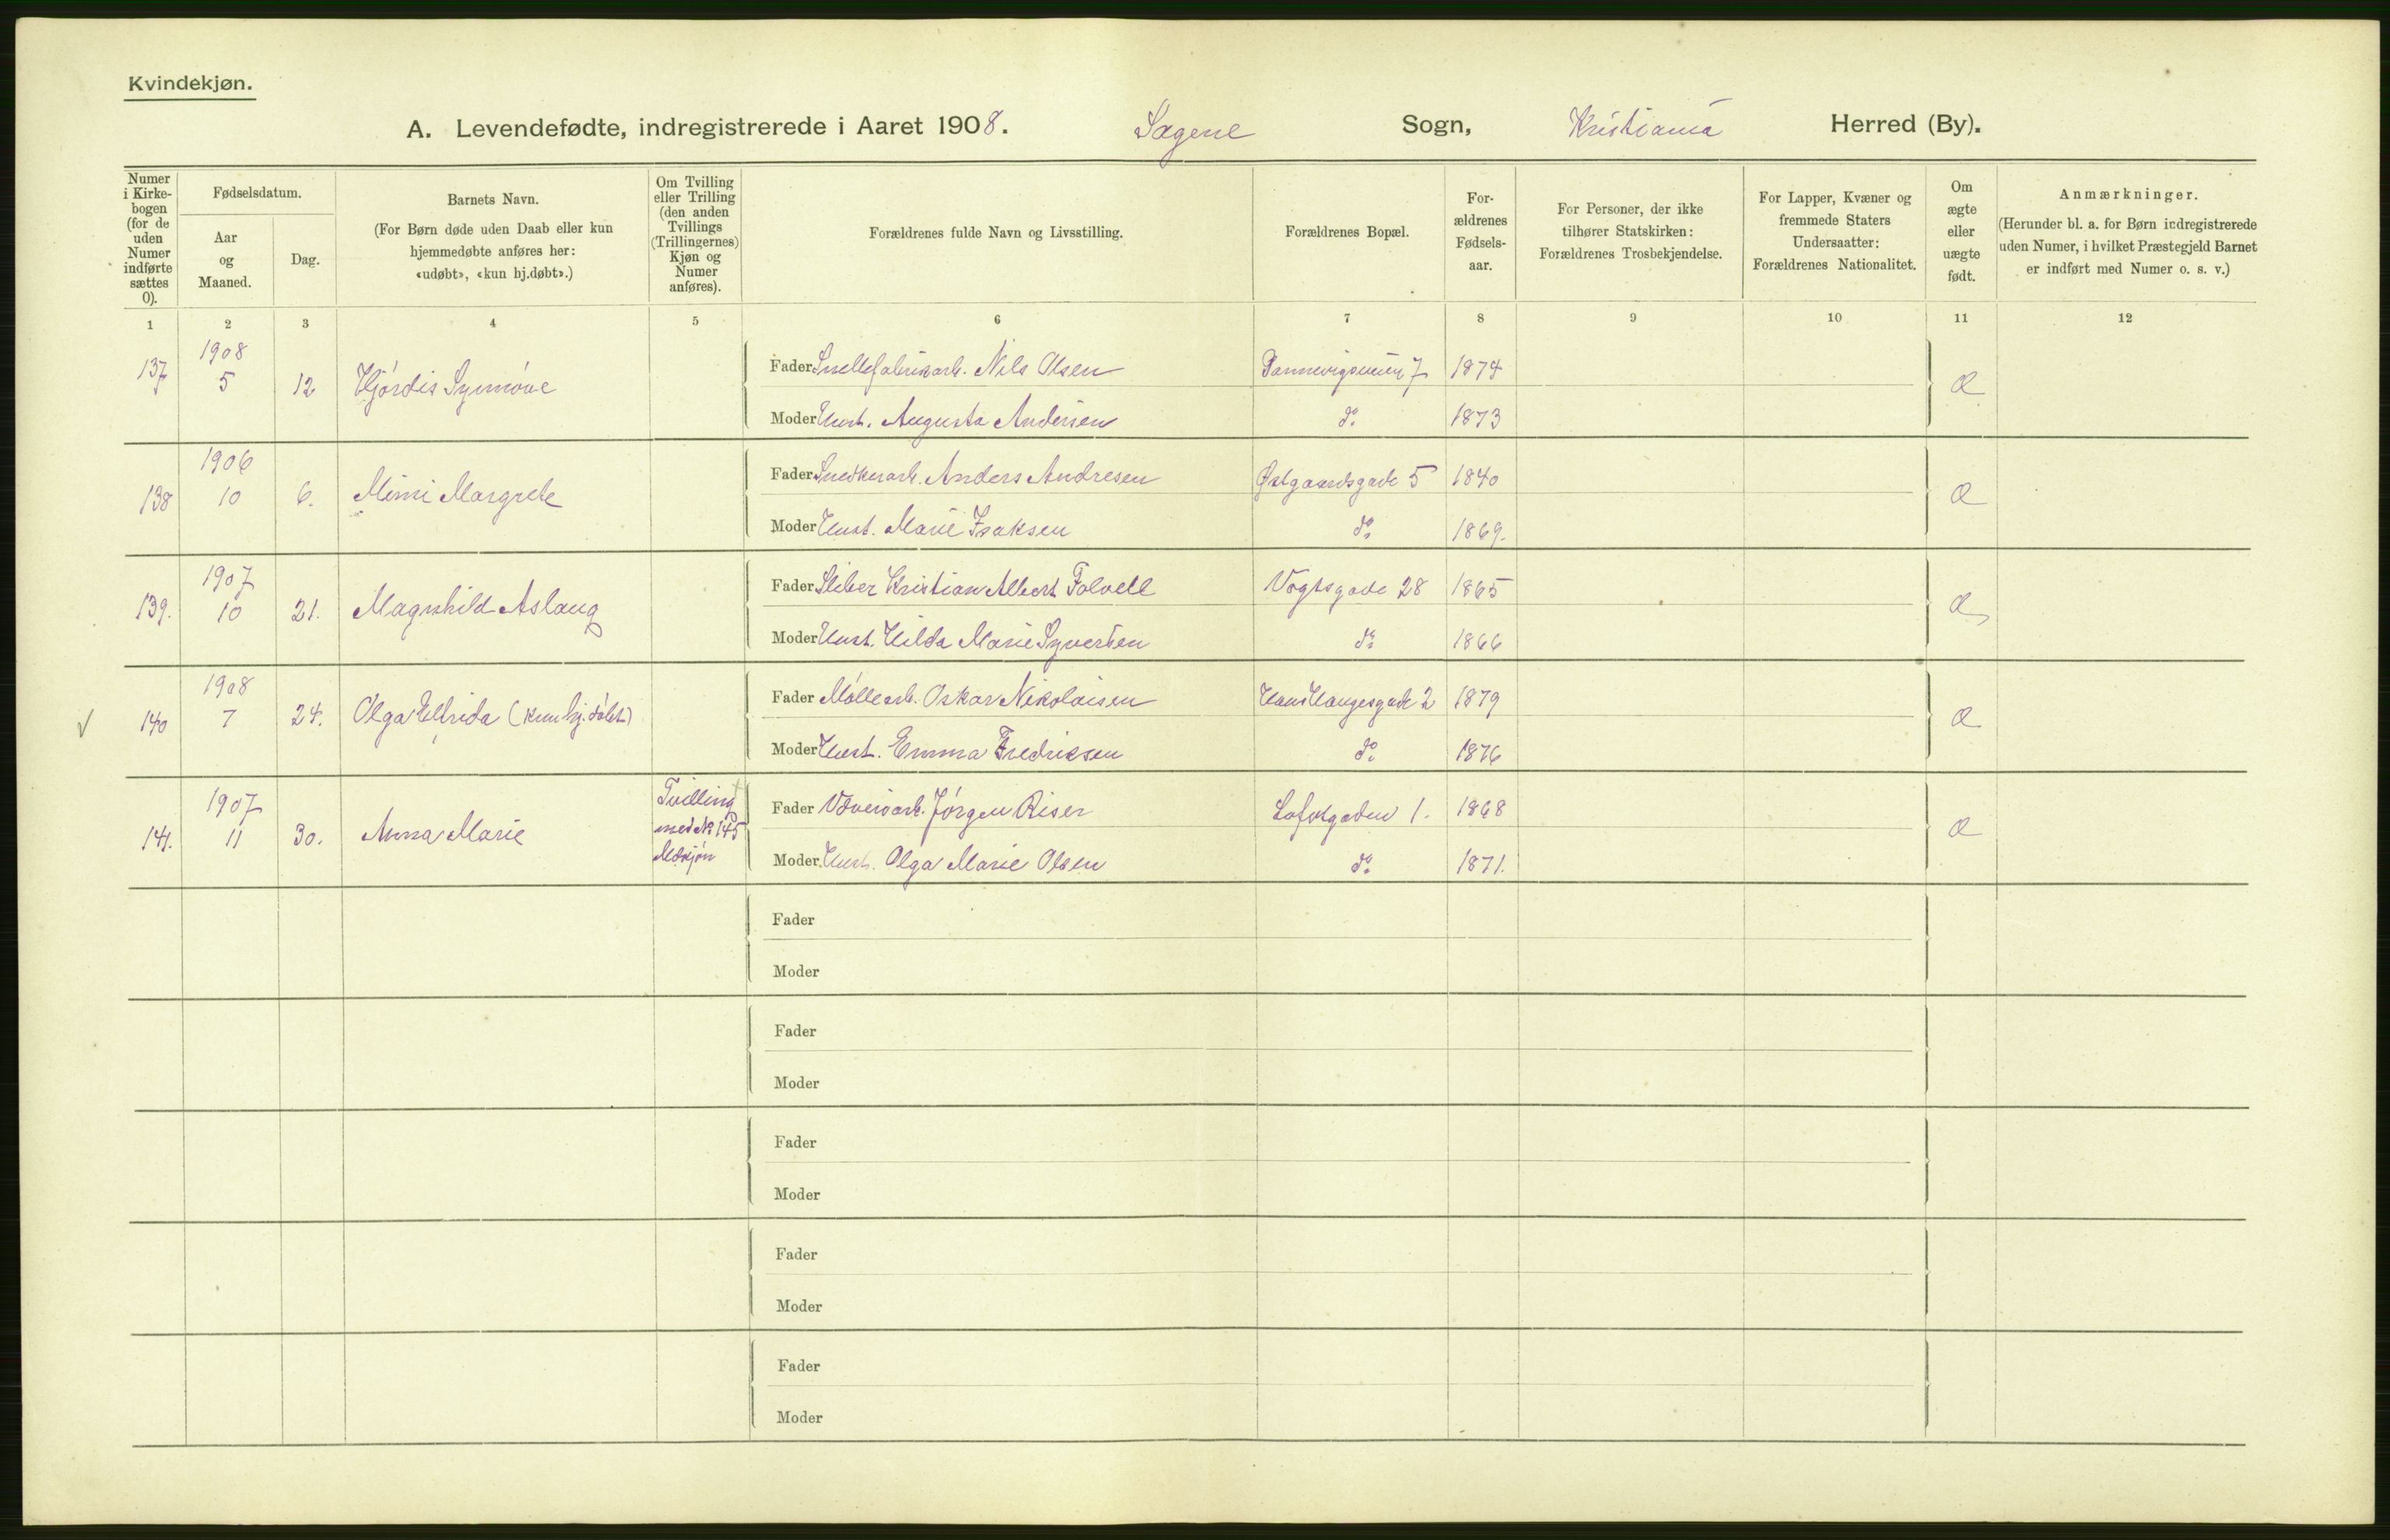 Kvindekjøn.
A. Levendefødte, indregistrerede i Aaret 1908. Sagene Sogn, Kristiania Herred (By).
Numer i Kirkebogen (for de uden Numer indførte sættes 0).
Fødselsdatum.
Aar og Maaned.
Dag.
Barnets Navn.
(For Børn døde uden Daab eller kun hjemmedøbte anføres her: «udøbt», «kun hj.døbt».)
Om Tvilling eller Trilling (den anden Tvillings (Trillingernes) Kjøn og Numer anføres).
Forældrenes fulde Navn og Livsstilling.
Forældrenes Bopæl.
Forældrenes Fødselsaar.
For Personer, der ikke tilhører Statskirken: Forældrenes Trosbekjendelse.
For Lapper, Kvæner og fremmede Staters Undersaatter: Forældrenes Nationalitet.
Om ægte eller uægte født.
Anmærkninger.
(Herunder bl. a. for Børn indregistrerede uden Numer, i hvilket Præstegjeld Barnet er indført med Numer o. s. v.)
1 2 3 4 5 6 7 8 9 10 11 12
137 1908 5 12 Hjørdis Synnøve
Fader Snellefabrikarb. Nils Olsen Dannevigsveien 7 1874 Æ
Moder Hust. Augusta Andersen do. 1873
138 1906 10 6. Mimi Margrete
Fader Snedkerarb. Anders Andresen Østgaardsgade 5 1840 Æ
Moder Hust. Marie Isaksen do. 1869.
139. 1907 10 21. Magnhild Aslaug
Fader Sliber Kristian Albert Folvell Vogtsgade 28 1865 Æ
Moder Hust. Hilda Marie Syvertsen do. 1866
✓ 140 1908 7 24. Olga Elfrida (kun hj.døbt)
Fader Møllearb. Oskar Nikolaisen Hans Haugesgade 2 1879 Æ
Moder Hust. Emma Fredriksen do. 1876
141. 1907 11 30. Anna Marie Tvilling med No 145 Mdkjøn
Fader Væveriarb. Jørgen Riser Lofotgaden 1. 1868 Æ
Moder Hust. Olga Marie Olsen do. 1871.
Fader
Moder
Fader
Moder
Fader
Moder
Fader
Moder
Fader
Moder